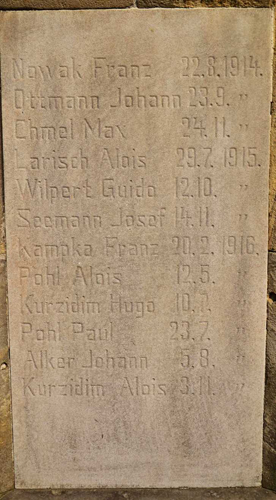 Nowak Franz 22.8.1914.
Ottmann Johann 23.9. "
Chmel Max 24.11. "
Larisch Alois 29.7.1915.
Wilpert Guido 12.10. "
Seemann Josef 14.11. "
Kamaka Franz 20.2.1916.
Pohl Alois 12.5. "
Kurzidim Hugo 10.7. "
Pohl Paul 23.7. "
Alker Johann 5.8. "
Kurzidim Alois 3.11. "